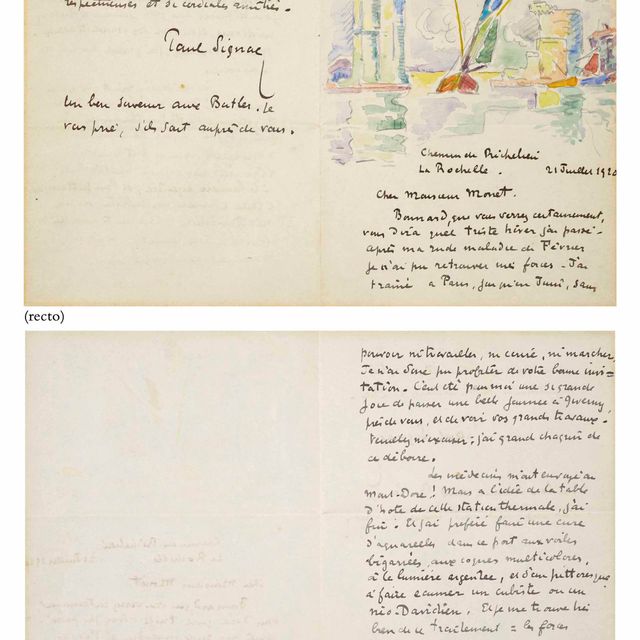 respectueuses et si cordiales amitiés.
Paul Signac
Un bon souvenir aux Butler. Je
vous prie, s'ils sont auprès de vous.
Chemin de Richelieu
La Rochelle. 21 Juillet 1920
Cher Monsieur Monet.
Bonnard, que vous verrez certainement,
vous dira quel triste hiver j'ai passé.
après ma rude maladie de Février
je n'ai pu retrouver mes forces - J'ai
traîné à Paris, jusqu'en Juin, sans
(recto)
pouvoir ni travailler, ni ni marcher,
Je n'ai donc pu profiter de votre bonne invi=
tation - C'eut été pour moi une si grande
joie de passer une belle journée à Giverny,
près de vous, et de voir vos grands travaux -
Veuillez m'excuser : j'ai grand chagrin de
ce déboire.
Les médecins m'ont envoyé au
Mont-Dore ! Mais à l'idée de la table
d'hôte de cette station thermale, j'ai
fui. Et j'ai préféré faire une cure
d'aquarelles dans ce port aux voiles
bigarrées, aux coques multicolores,
à la lumière argentée, et d'un pittoresque
à faire écumer un cubiste ou un
néo-Davidien. Et je me trouve très
bien de ce traitement = les forces